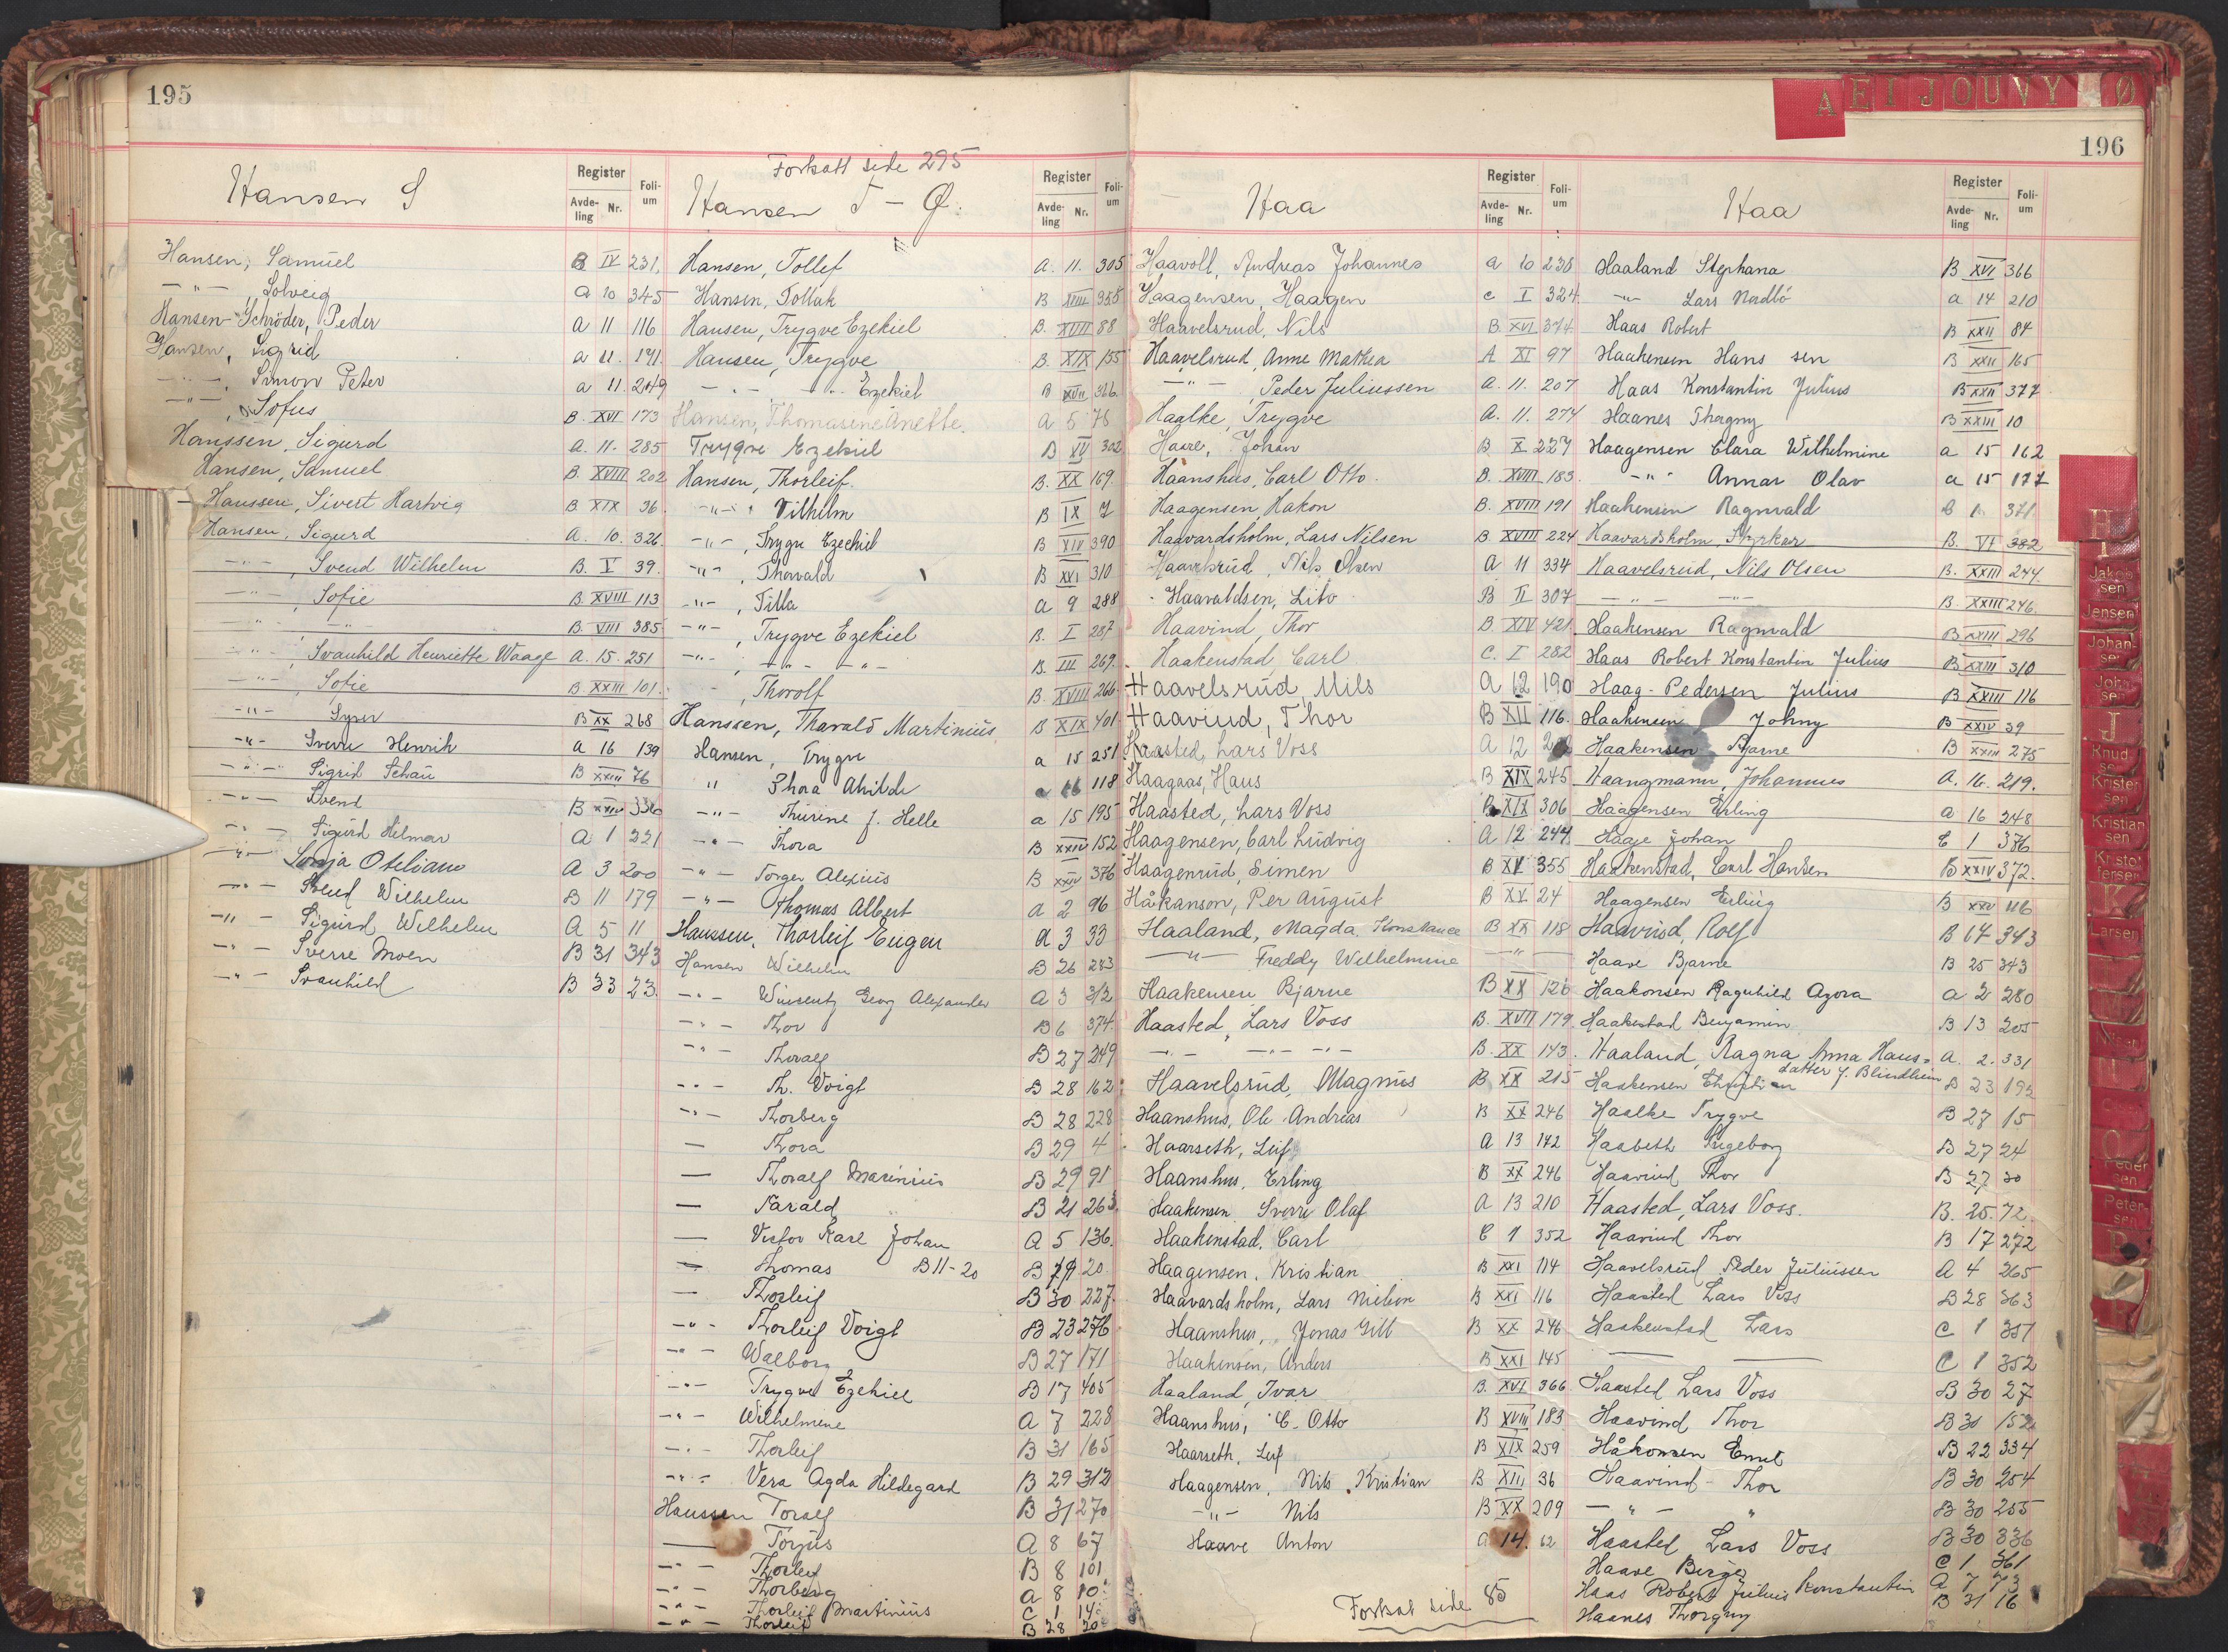 195
Hansen S
Register
Avde-ling Nr.
Foli-um
Hansen, Samuel B IV 231
—"— , Solveig a 10 345
Hansen-Schröder, Peder a 11 116
Hansen, Sigrid a 11. 191.
—"—, Simon Peter a 11. 249
—"—, Sofus B. XVI 173
Hanssen, Sigurd a. 11. 285
Hansen, Samuel B. XVIII 202
Hanssen, Sivert Hartvig B. XIX 36
Hansen, Sigurd a. 10. 326.
—"—, Svend Wilhelm B. V 39.
—"—, Sofie B. XVIII 113
—"— —"— B. VIII 385
—"—, Svanhild Henriette Waage A. 15. 251
—"—, Sofie B. XXIII 101.
—"— B XX 268
—"— Sverre Henrik a 16 139
—"— Sigrid Schau B XXIII 76
—"— Svend B XXIV 336
—"— Sigurd Helmar a 1 221
—"— Sonja Otiliane A 3 200
—"— Svend Wilhelm B 11 179
—"— Sigurd Wilhelm a 5 11
—"— Sverre Moen B 31 343
—"— Svanhild B 33 23.
Fortsatt side 295
Hansen T – Ø.
Register
Avde-ling Nr.
Foli-um
Hansen, Tollef a. 11. 305
Hansen, Tollak B XVIII 355
Hansen, Trygve Ezekiel B. XVIII 88
Hansen, Trygve B. XIX 155
—"— —"— Ezekiel B XVII 366.
Hansen, Thomasine Anette. a 5 76
Trygve Ezekiel B XV 302
Hansen, Thorleif. B. XX 169.
—"— " Vilhelm B IX 7
—"—, Trygve Ezechiel B XIV 390
—"—, Thorvald B XXI 310
—"—, Tilla a 9 288
—"—, Trygve Ezekiel B. I 287
—"—, —"— —"— B. III 269.
—, Thorolf B. XVIII 266
Hanssen, Tharald Martinius B XIX 401
Hansen, Trygve a 15 251
" Thora Ahilde a 16 118
—"— Thurine f. Helle a 15 195
—"— Thora B XXIV 152
—"— Torger Alexius B XXIV 376
—"— Thomas Albert a 2 96
Hanssen, Thorleif Eugen a 3 33
Hansen Wilhelm B 26 283
—"— Winsentz Georg Alexander a 3 312
—"— Thor B 6 374.
—"— Thoralf B 27 249
—"— Th. Voigt B 28 162
—"— Thorberg B 28 228
— Thora B 29 4
— Thoralf Marinius B 29 91
— Tarald B 21 263.
— Victor Karl Johan a 5 136.
— Thomas B 11-20 B 29 20
— Thorleif B 30 227.
—"— Thorleif Voigt B 23 276
—"— Walborg B 27 171
—"— Trygve Ezekiel B 17 405
—"— Wilhelmine a 7 228
—"— Thorleif B 31 165
—"— Vera Agda Hildegard B 29 312
Hanssen Toralf B 31 270
— Torjus a 8 67
—"— Thorleif B 8 101
—"— Thorberg a 8 10
—"— Thorleif Martinius C 1 14
—"— Thorleif B 28 20
Haa
Register
Avde-ling Nr.
Foli-um
Haavoll, Andreas Johannes a 10 238
Haagensen, Haagen c I 324
Haavelsrud, Nils B. XVI 374
Haavelsrud, Anne Mathea A XI 97
—"—, Peder Juliussen a. 11. 207
Haalke, Trygve A. 11. 274
Haare, Johan B X 227
Haanshus, Carl Otto. B. XVIII 183
Haagensen, Hakon B. XVIII 191
Haavardsholm, Lars Nilsen B. XVIII 224
Haavelsrud, Nils Olsen a 11 334
Haavaldsen, Lito B II 307
Haavind, Thor B. XIV 421
Haakenstad Carl C. I 282
Haavelsrud, Nils a 12 190
Haavind, Thor B XII 116.
Haasted, Lars Voss a 12
Haagaas, Hans B XIX 245
Haasted, Lars Voss B XIX 306
Haagensen, Carl Ludvig a 12 244
Haagenrud, Simen B XX 355
Håkanson, Per August B XX 24
Haaland, Magda Konstance B XX 118
—"— Freddy Wilhelmine —"—
Haakensen Bjarne B XX 126
Haasted, Lars Voss B. XVII 179
—"— —"— —"— B. XX 143.
Haavelsrud, Magnus B XX 215
Haanshus, Ole Andreas B XX 246
Haarseth, Leif a 13 142
Haanshus, Erling B XX 246
Haakensen Sverre Olaf a 13 210
Haakenstad, Carl C 1 352
Haagensen, Kristian B XXI 114
Haavardsholm, Lars Nielsen B XXI 116
Haanshus, Jonas Gill B XX 246
Haakensen, Anders B XXI 145
Haaland, Ivar B. XVI 366
Haanshus, C. Otto B XVIII 183
Haarseth, Leif B XIX 259
Haagensen, Nils Kristian B XIII 36
—"— Nils B XX 209
Haave Anton a 14. 62
Fortsat side 85
A E I J O U V Y Ø
196
Haa
Register
Avde-ling Nr.
Foli-um
Haaland Stephana B XVI 366
—"— Lars Nordbö a 14 210
Haas Robert B XXII 84
Haakensen Hans sen B XXII 165
Haas Konstantin Julius B XXII 377
Haanes Thragny B XXIII 10
Haagensen Clara Wilhelmine a 15 162
—"— Annar Olav a 15 177
Haakensen Ragnvald 371
Haavardsholm, Styrkar B. VI 382
Haavelsrud, Nils Olsen B. XXIII 244
—"— —"— B. XXIII 246
Haakensen Ragnvald B XXIII 296
Haas Robert Konstantin Julius B XXIII 310
Haag-Pedersen Julius B XXIII 116
Haakensen Johny B XXIV 39
Haakensen Bjarne B XXIII 275
Haangmann, Johannes A. 16. 219.
Haagensen Erling a 16 248
Haaje Johan C 1 376
Haakenstad, Carl Hansen B XXIV 372.
Haagensen Erling B XXV 116
Haavind, Rolf B 17 343
Haave Bjarne B 25 343
Haakonsen Ragnhild Agora a 2 280
Haakestad Benjamin B 13 205
Haaland, Ragna Anna Hans- a. 2. 331
datter f. Blindheim
Haakensen Christian B 23 192
Haalke Trygve B 27 15
Haabeth Ingeborg B 27 24
Haavind Thor B 27 30
Haasted, Lars Voss. B. 25. 72.
Haavind Thor B 17 272
Haavelsrud Peder Juliussen a 4 265
Haasted Lars Voss B 28 363
Haakenstad Lars C 1 351
— — C 1 352
Haasted Lars Voss B 30 27
Haavind Thor B 30 152
Håkonsen Emil B 22 334
Haavind Thor B 30 254
—"— " B 30 255
Haasted Lars Voss B 30 336
Haave Birger C 1 361
Haas Robert Julius Konstantin a 7 73
Haanes Thorgny B 31 16
H
I
Jakobsen
Jensen
Johansen
J
Knudsen
Kristensen
Kristiansen
Kristoffersen
K
Larsen
Nilsen
Pedersen
Petersen